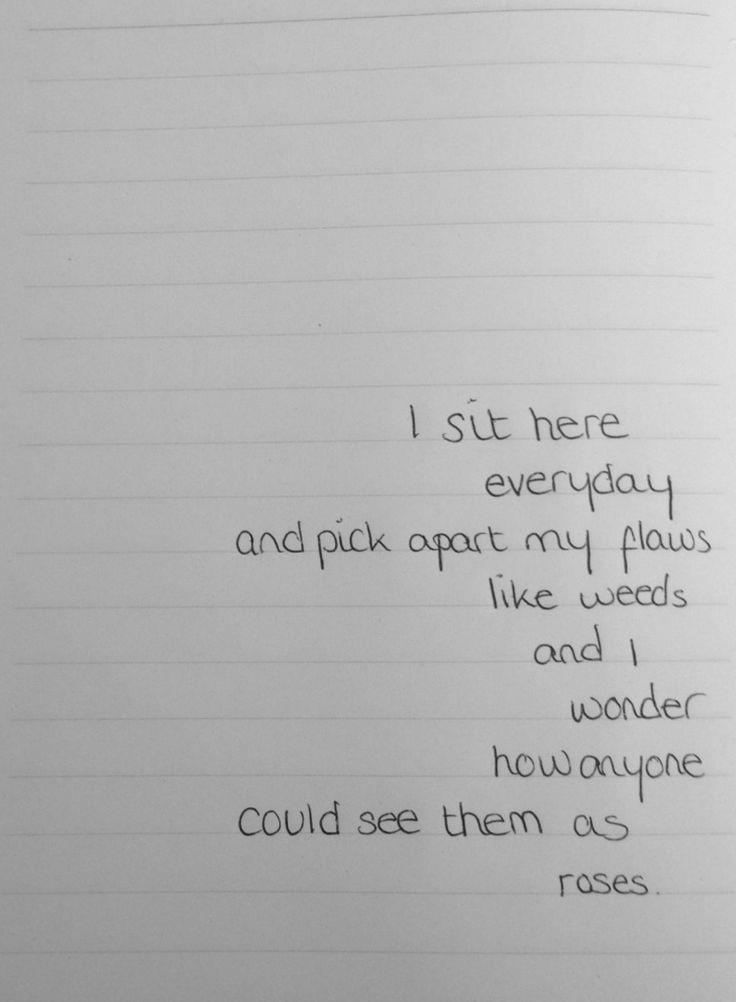 I sit here
everyday
and pick apart my flaws
like weeds
and I
wonder
how anyone
could see them as
roses.